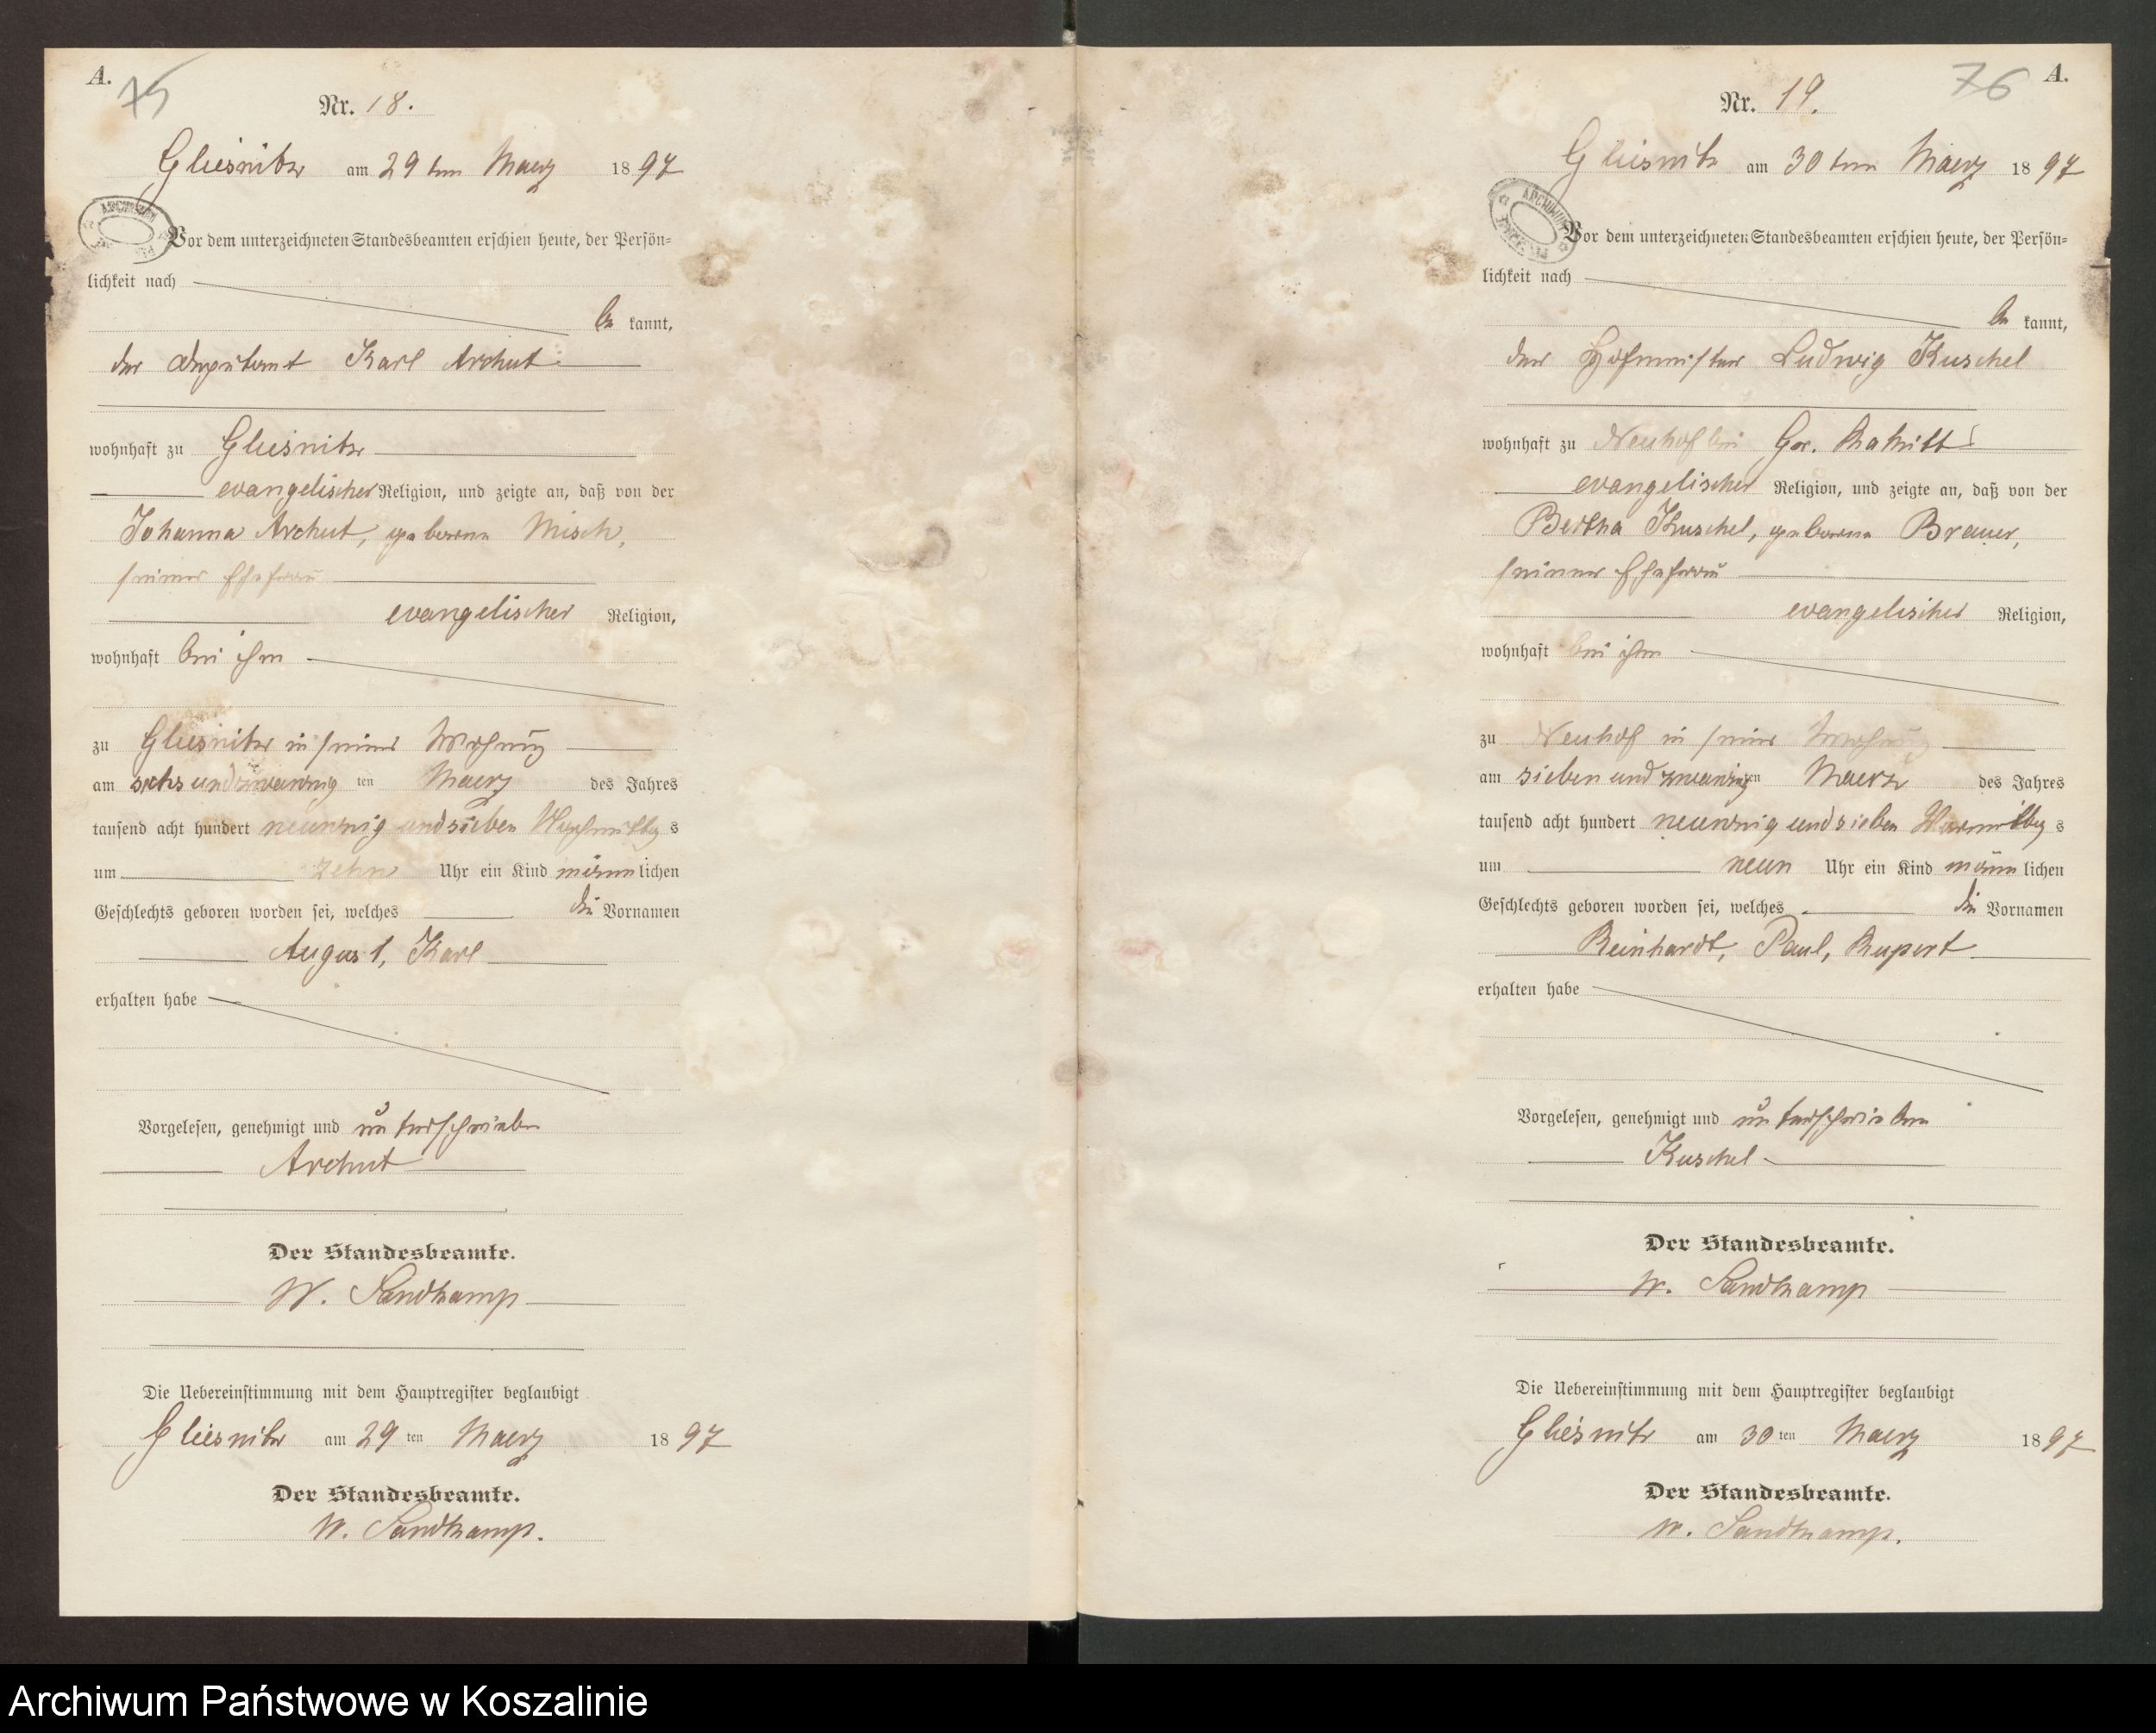 A.
75
Nr. 18.
Gliesnitz am 29ten Maerz 1897
Vor dem unterzeichneten Standesbeamten erschien heute, der Persön-
lichkeit nach
be kannt,
der Deputant Karl Archut
wohnhaft zu Gliesnitz
evangelischer Religion, und zeigte an, daß von der
Johanna Archut, geborene Misch,
seiner Ehefrau
evangelischer Religion,
wohnhaft bei ihm
zu Gliesnitz in seiner Wohnung
am sechsundzwanzig ten Maerz des Jahres
tausend acht hundert neunzig und sieben Nachmittag s
um zehn Uhr ein Kind männ lichen
Geschlechts geboren worden sei, welches die Vornamen
August, Karl
erhalten habe
Vorgelesen, genehmigt und unterschrieben
Archut
Der Standesbeamte.
W. Sandkamp
Die Uebereinstimmung mit dem Hauptregister beglaubigt
Gliesnitz am 29 ten Maerz 1897
Der Standesbeamte.
W. Sandkamp.
76
A.
Nr. 19.
Gliesnitz am 30ten Maerz 1897
ARCHIWUM
Vor dem unterzeichneten Standesbeamten erschien heute, der Persön-
lichkeit nach
be kannt,
der Hofmeister Ludwig Kuschel
wohnhaft zu Neuhof bei Gr.
evangelischer Religion, und zeigte an, daß von der
Bertha Kuschel, geborene Brauer,
seiner Ehefrau
evangelischer Religion,
wohnhaft bei ihm
zu Neuhof in seiner Wohnung
am sieben und zwanzig ten Maerz des Jahres
tausend acht hundert neunzig und sieben Vormittag s
um neun Uhr ein Kind männ lichen
Geschlechts geboren worden sei, welches die Vornamen
Reinhardt, Paul, Rupert
erhalten habe
Vorgelesen, genehmigt und unterschrieben
Kuschel
Der Standesbeamte.
W. Sandkamp
Die Uebereinstimmung mit dem Hauptregister beglaubigt
Gliesnitz am 30 ten Maerz 1897
Der Standesbeamte.
W. Sandkamp.
Archiwum Państwowe w Koszalinie